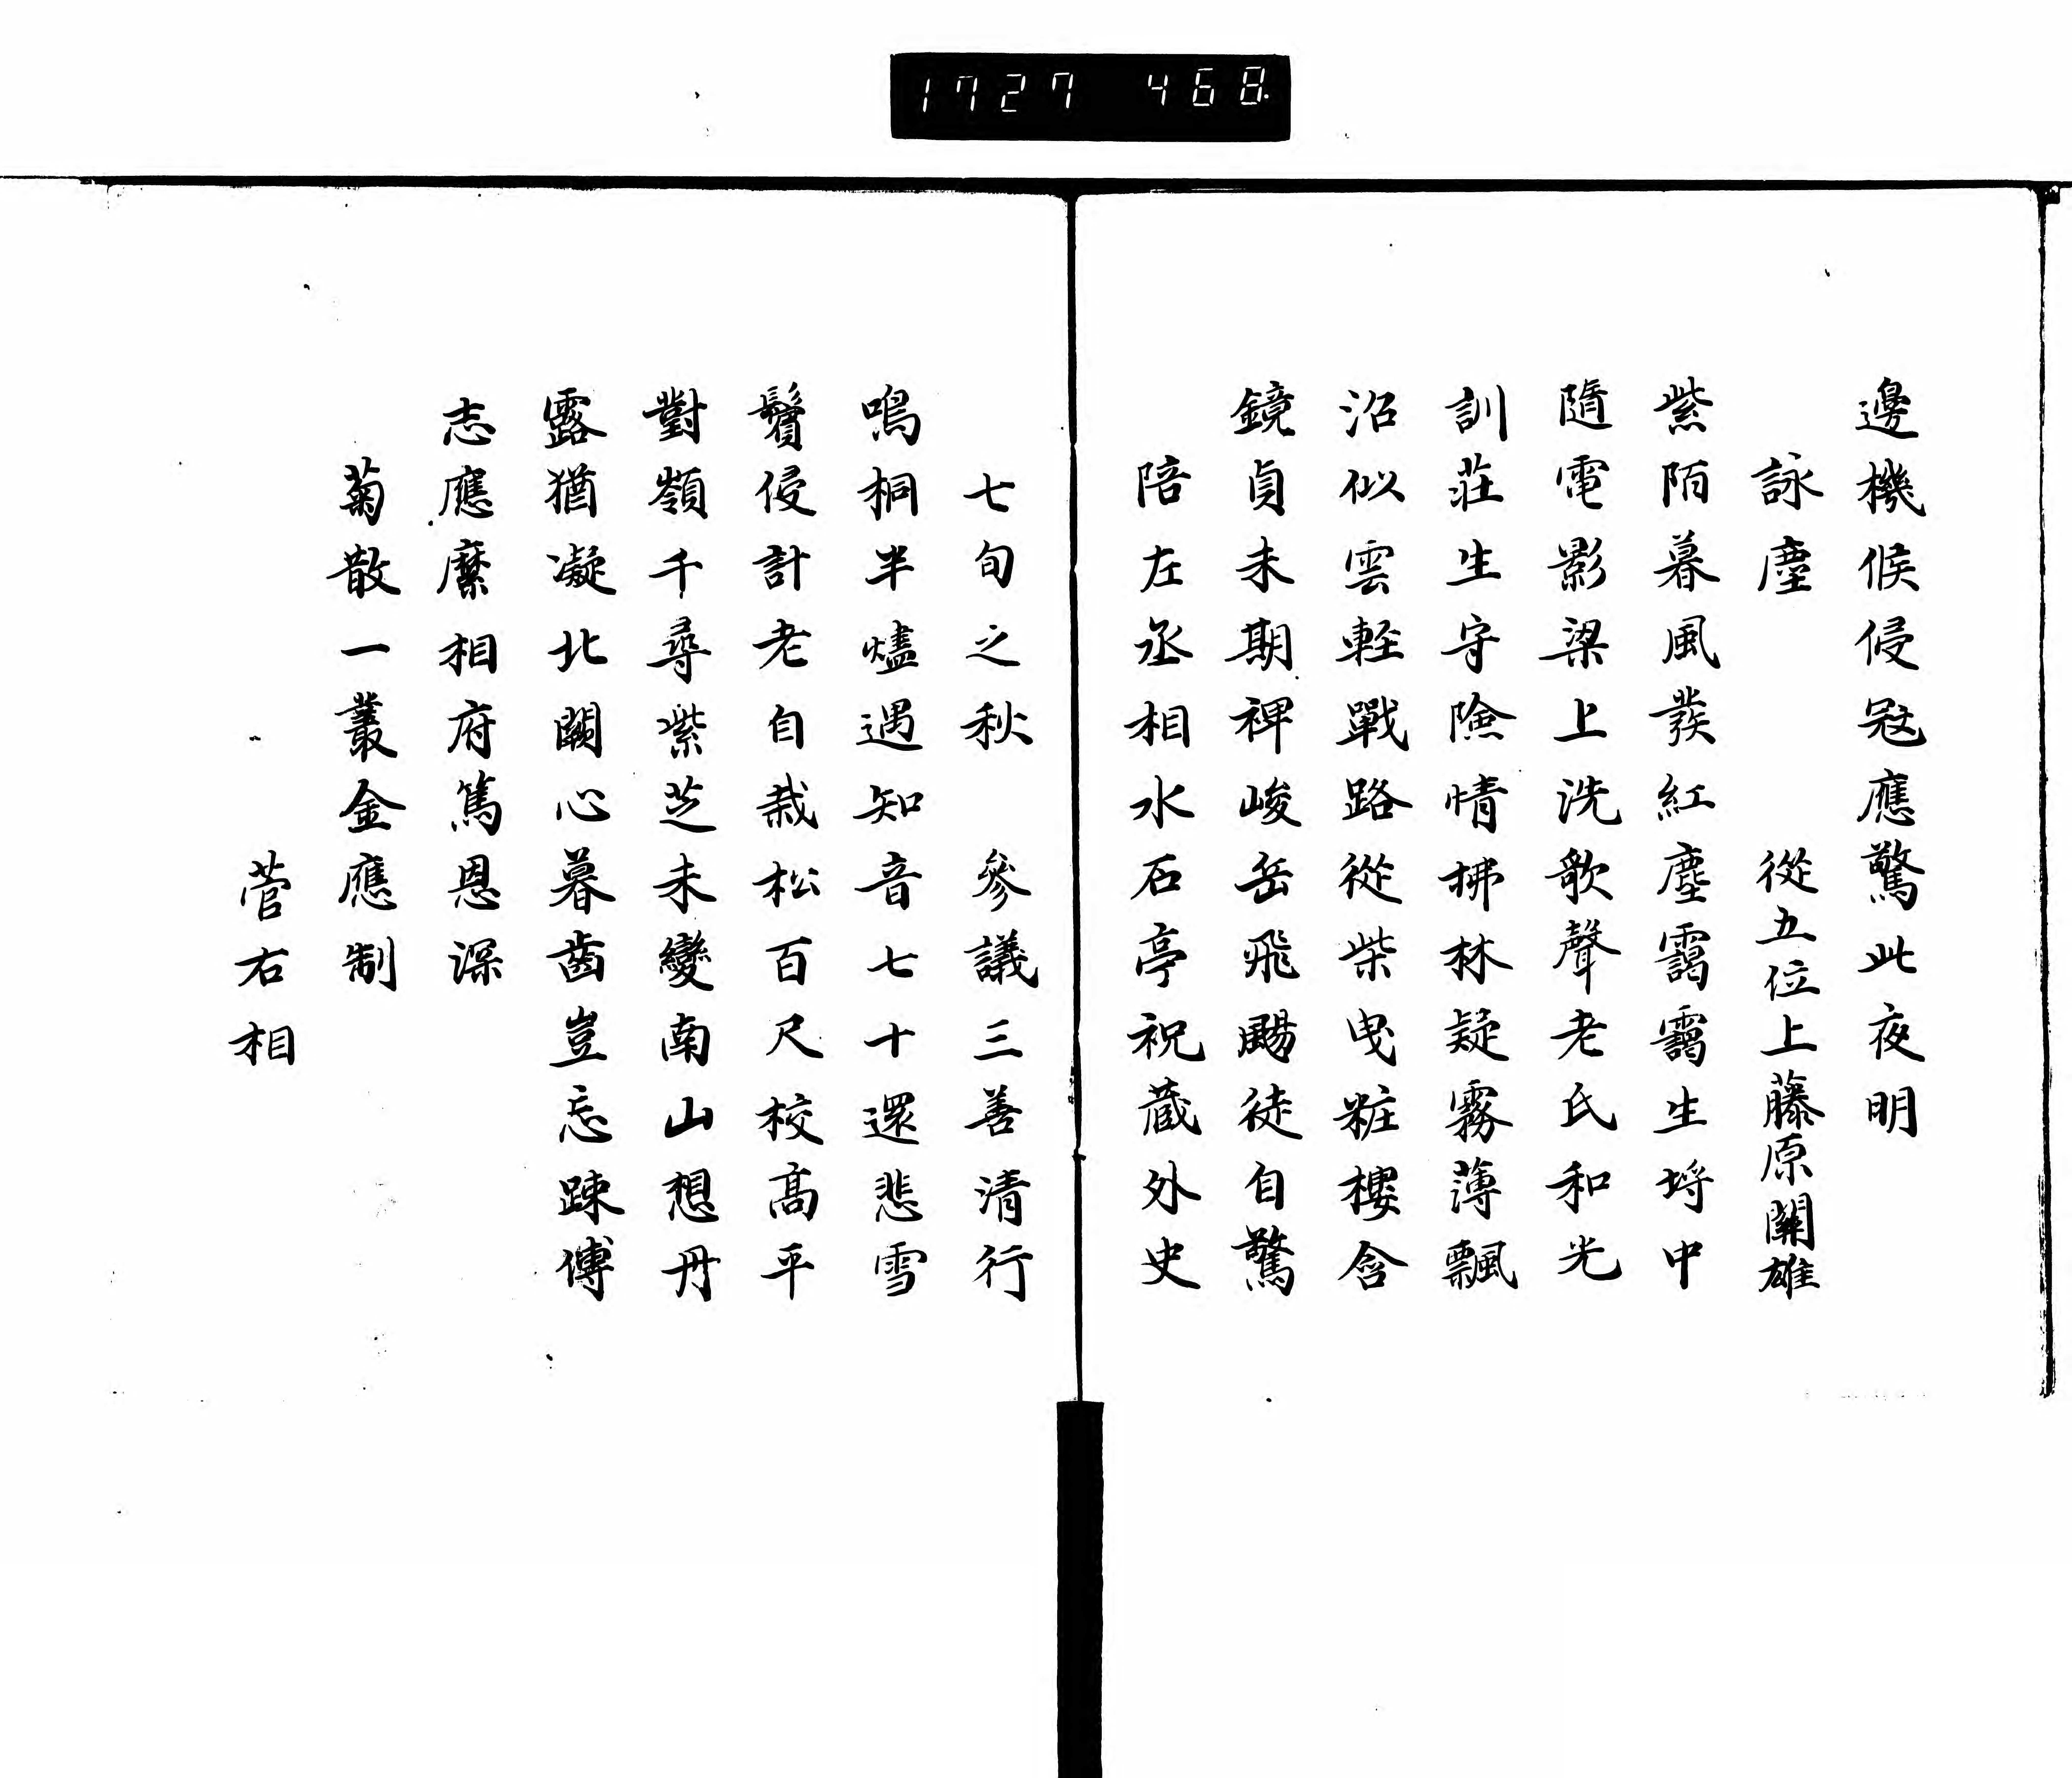 1727 468
邊機候侵冦應驚此夜明
詠塵 從五位上藤原關雄
紫陌暮風發紅塵靄靄生埓中
隨電影梁上洗歌聲老氏和光
訓莊生守險情拂林疑霧薄飄
沼似雲輕戰路從柴曳粧樓含
鏡貞未期裨峻岳飛颺徒自驚
陪左丞相水石亭祝蔵外史
七旬之秋 參議三善清行
鳴桐半燼遇知音七十還悲雪
鬢侵計老自栽松百尺校髙平
對嶺千尋紫芝未變南山想丹
露猶凝北闕心暮齒豈忘踈傅
志應縻相府篤恩深
菊散一叢金應制
菅右相